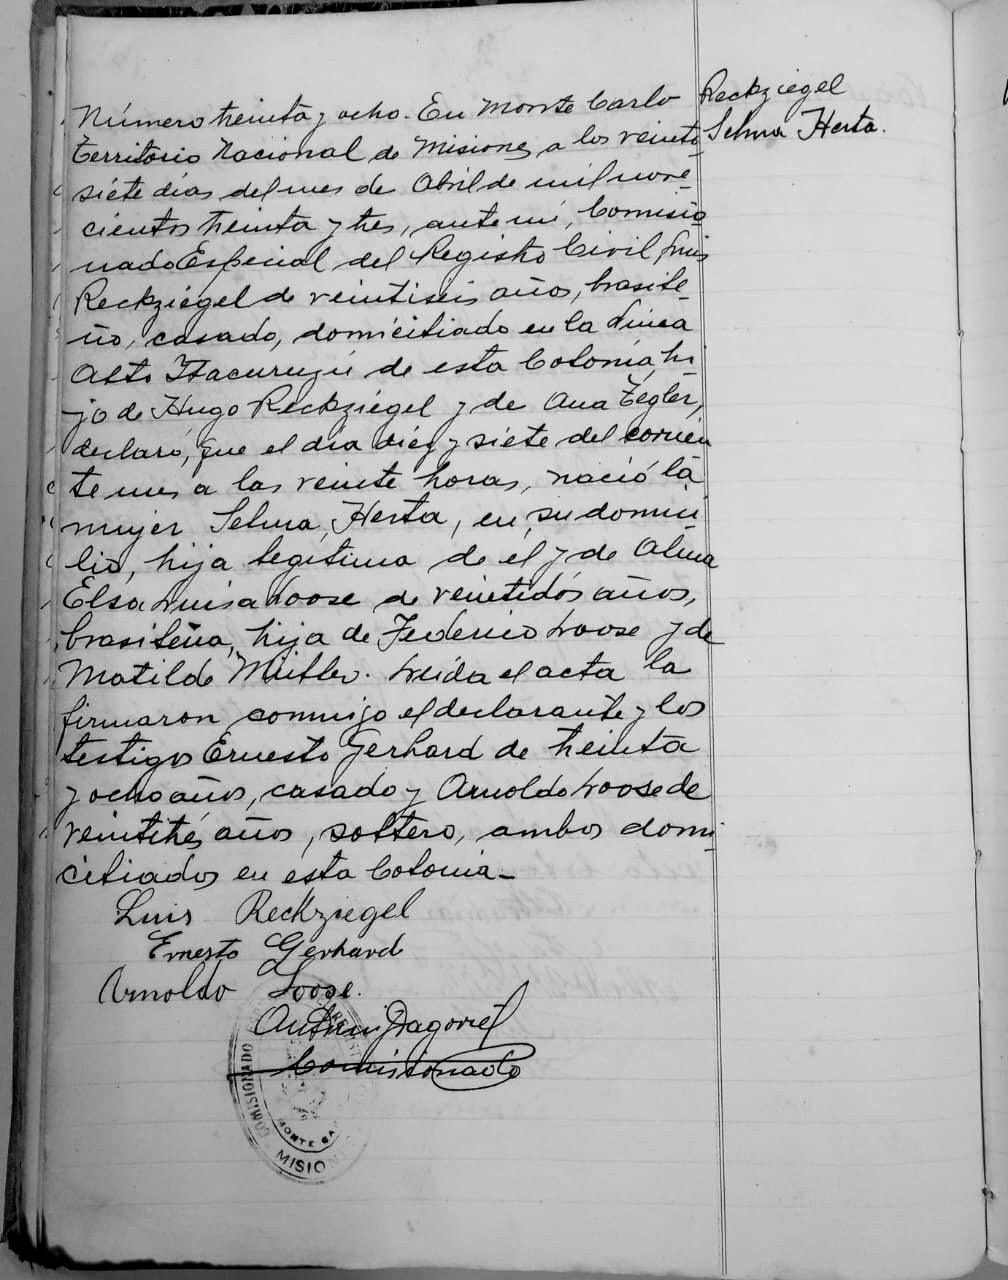 Número treinta y ocho. En Monte Carlo
Territorio Nacional de Misiones, a los veinti-
siete días del mes de Abril de mil nove-
cientos treinta y tres, ante mí, Comisio
nado Especial del Registro Civil, Luis
Reckziegel de veintiseis años, brasile-
ño, casado, domiciliado en la Linea
Alto Itacuruzú de esta Colonia, hi-
jo de Hugo Reckziegel y de Ana Zegler,
declaró, que el día diez y siete del corrien
te mes a las veinte horas, nació la
mujer Selma, Herta, en su domici-
lio, hija legítima de el y de Alma
Elsa Luisa Loose de veintidós años,
brasileña, hija de Federico Loose y de
Matilde Müller. Leída el acta la
firmaron conmigo el declarante y los
testigos Ernesto Gerhard de treinta
y ocho años, casado y Arnoldo Loose de
veintitrés años, soltero, ambos domi
ciliados en esta Colonia-
Reckziegel
Selma Herta.
Luis Reckziegel
Ernesto Gerhard
Arnoldo Loose.
Comisionado
COMISIONADO
MONTE CA
MISION